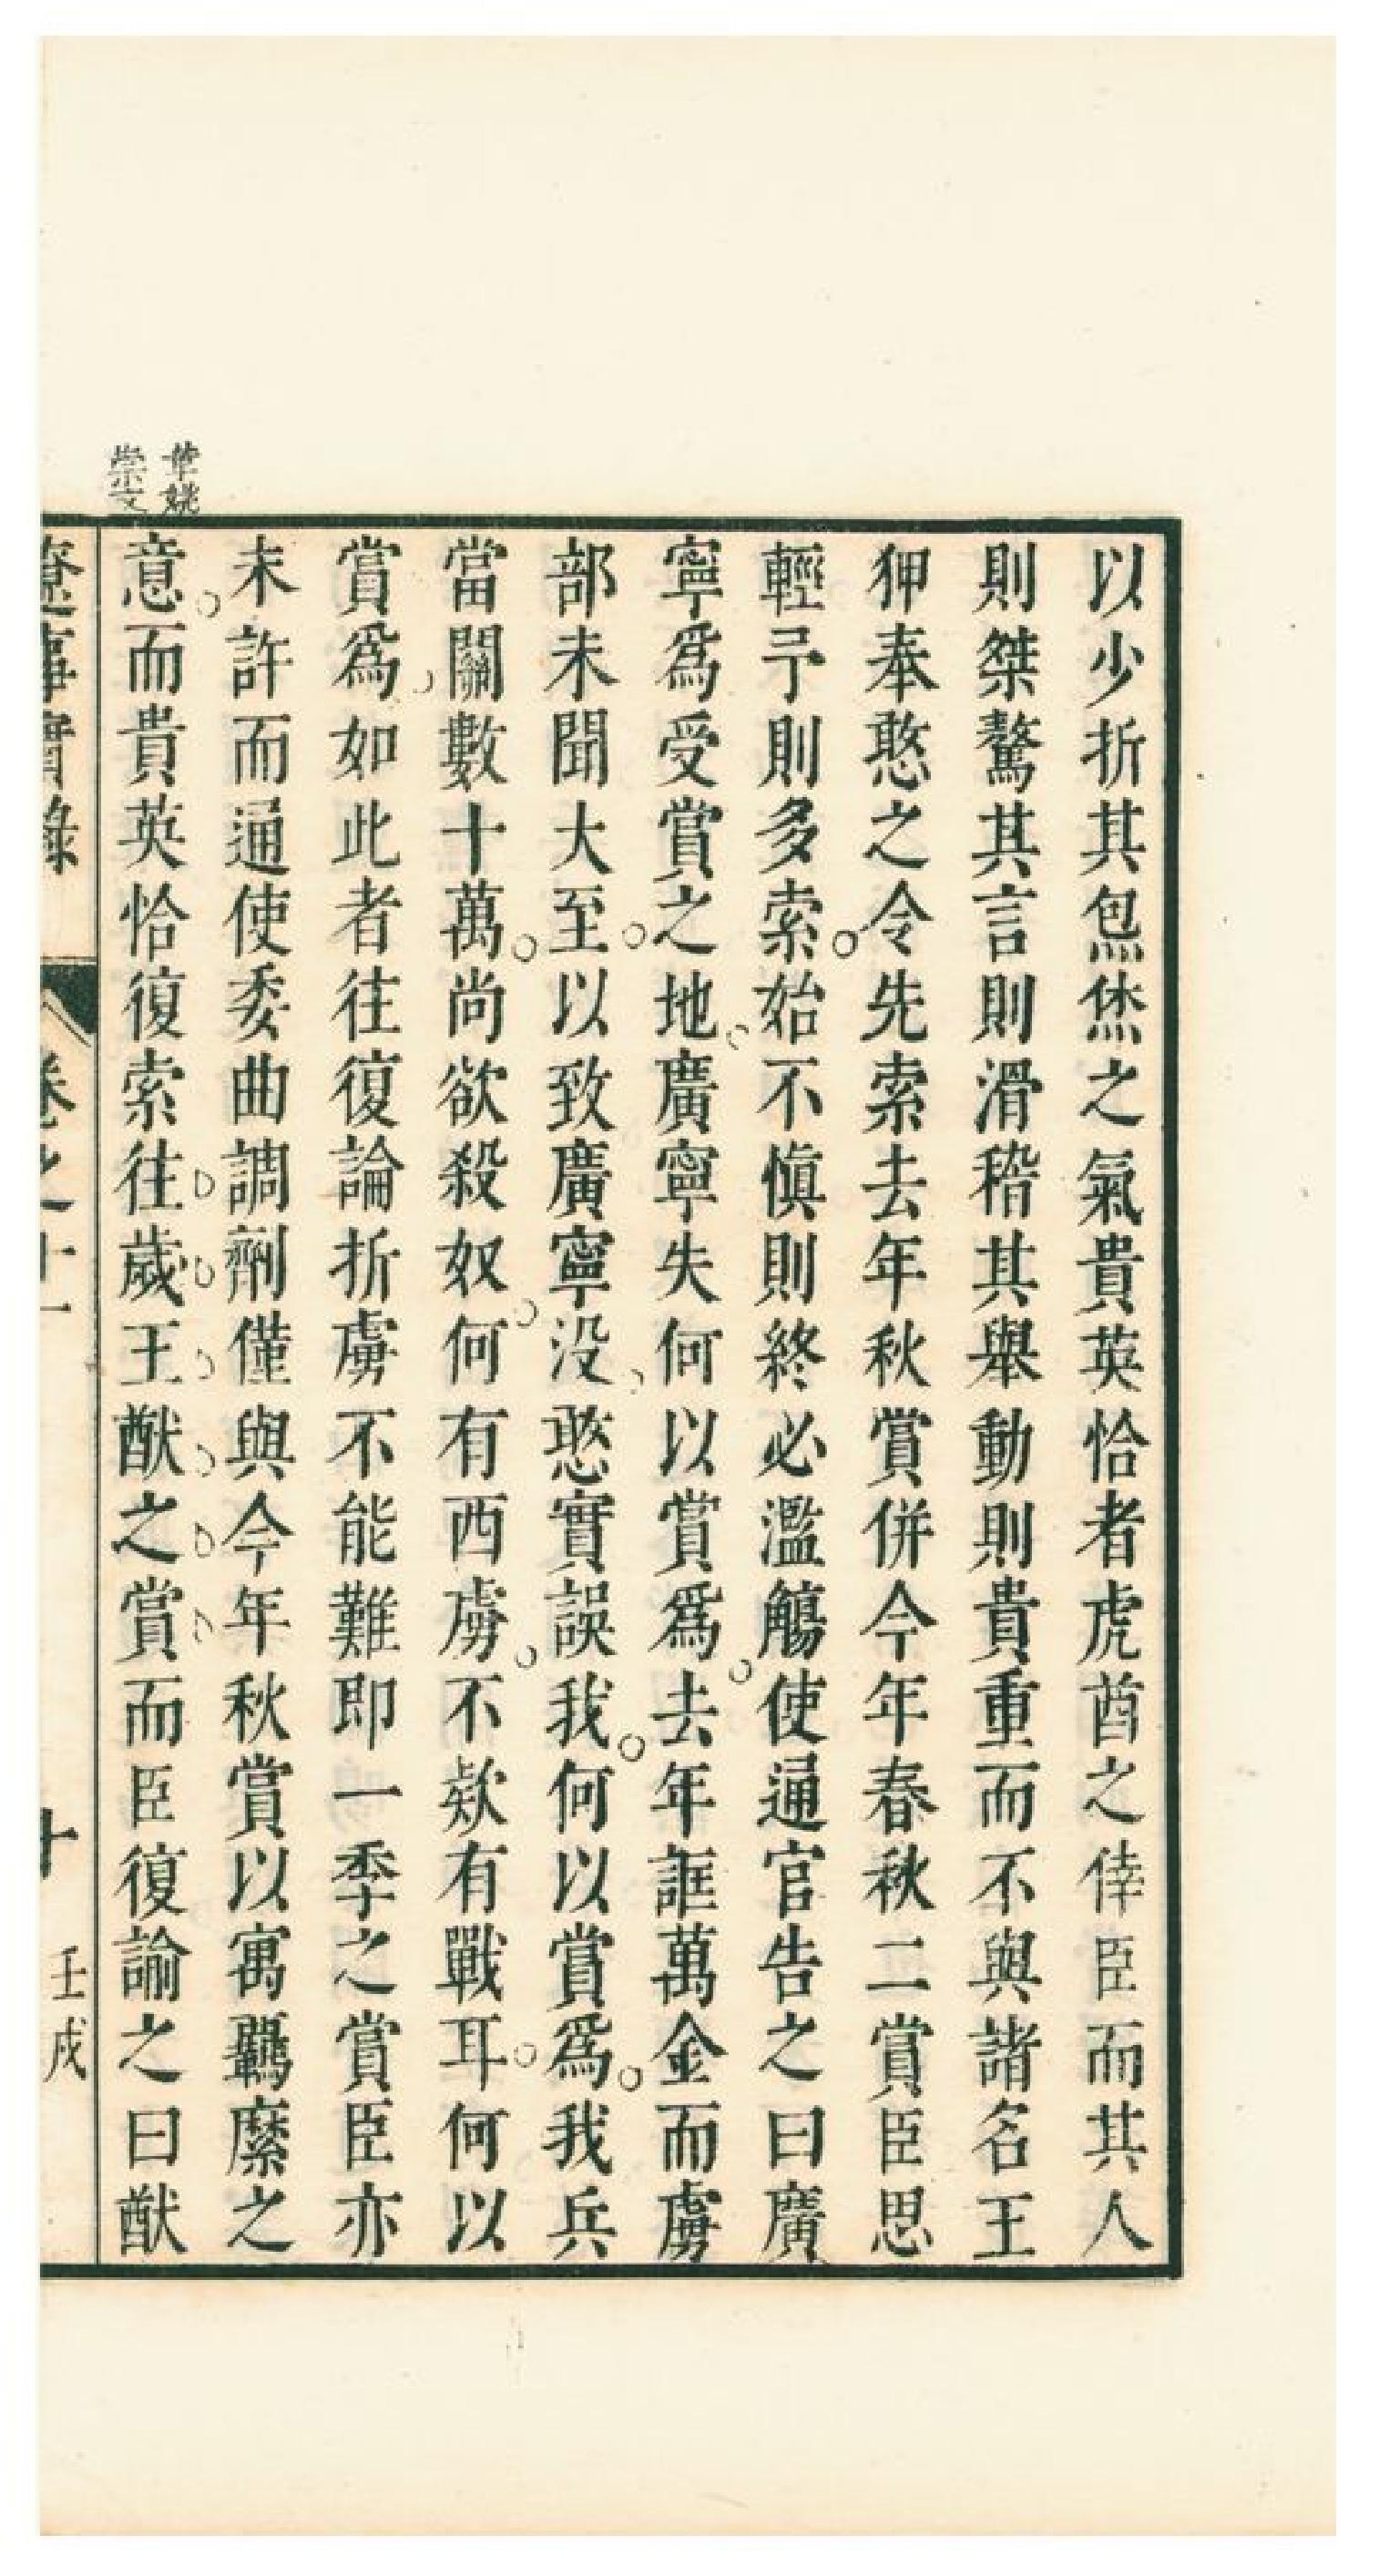 以少折其炰烋之氣貴英恰者虎酋之倖臣而其人
則桀驁其言則滑稽其舉動則貴重而不與諸名王
狎奉憨之令先索去年秋賞併今年春秋二賞臣思
輕予則多索始不愼則終必濫觴使通官告之曰廣
寧爲受賞之地廣寧失何以賞爲去年誆萬金而虜
部未聞大至以致廣寧没憨實誤我何以賞爲我兵
當關數十萬尚欲殺奴何有西虜不欵有戰耳何以
賞爲如此者往復論折虜不能難即一季之賞臣亦
未許而通使委曲調劑僅與今年秋賞以寓羈縻之
意而貴英恰復索往歲王猷之賞而臣復諭之曰猷
遼事實錄
卷之十一
十
壬戌